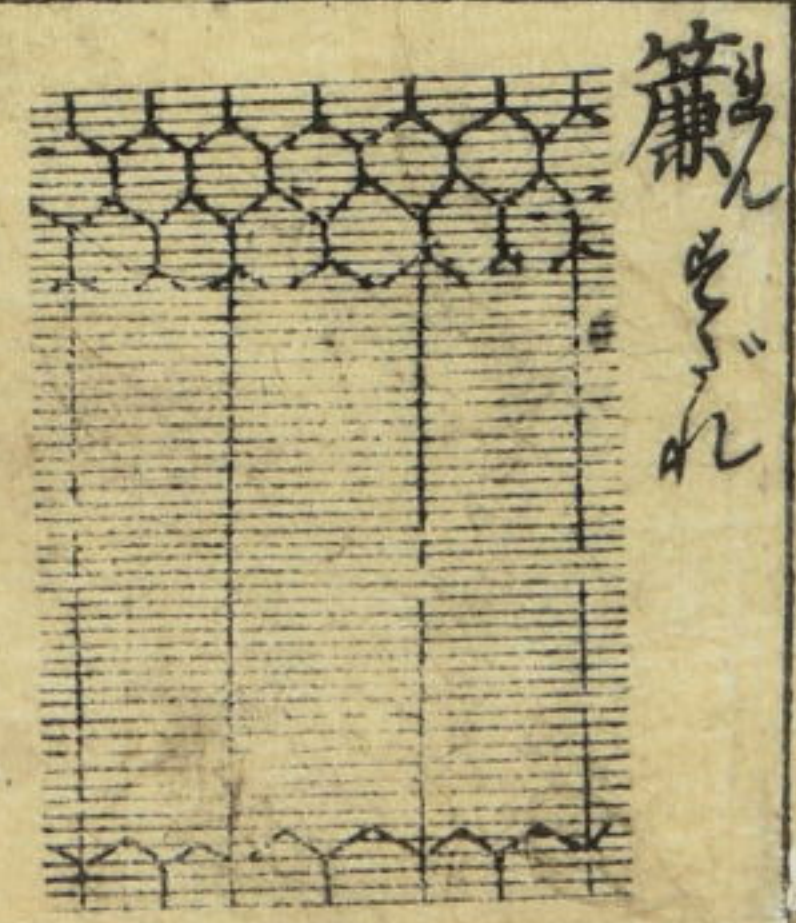 簾
れん
すだれ